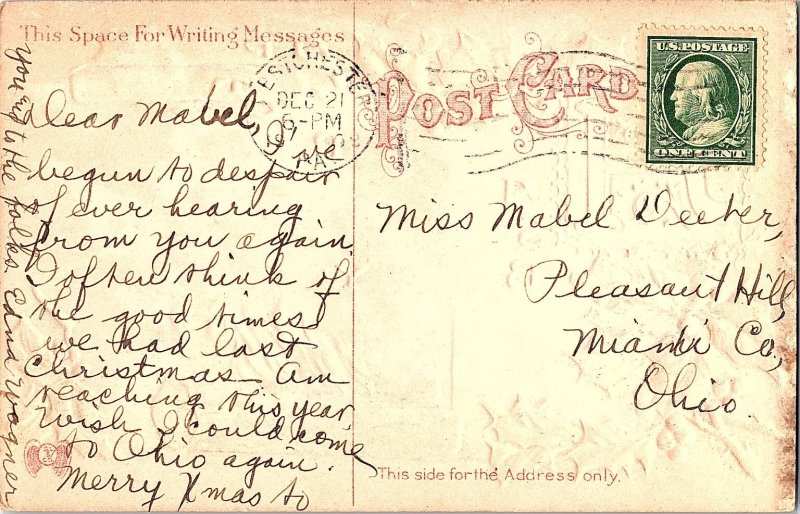 This Space For Writing Messages
POST CARD
U.S. POSTAGE
ONE CENT
DEC 21
6-PM
PA.
Dear Mabel,
we
begun to despair
of ever hearing
from you again.
I often think of
the good times
we had last
Christmas. Am
teaching this year,
Wish I could come
to Ohio again.
Merry Xmas to
you & to the folks. Edna Wagner
Miss Mabel Deeter,
Pleasant Hill,
Miami Co.,
Ohio.
This side for the Address only.